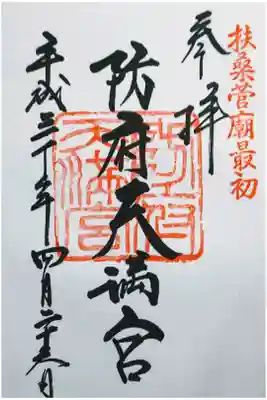 扶桑菅廟最初
奉拝
防府天満宮
平成三十年四月二十日